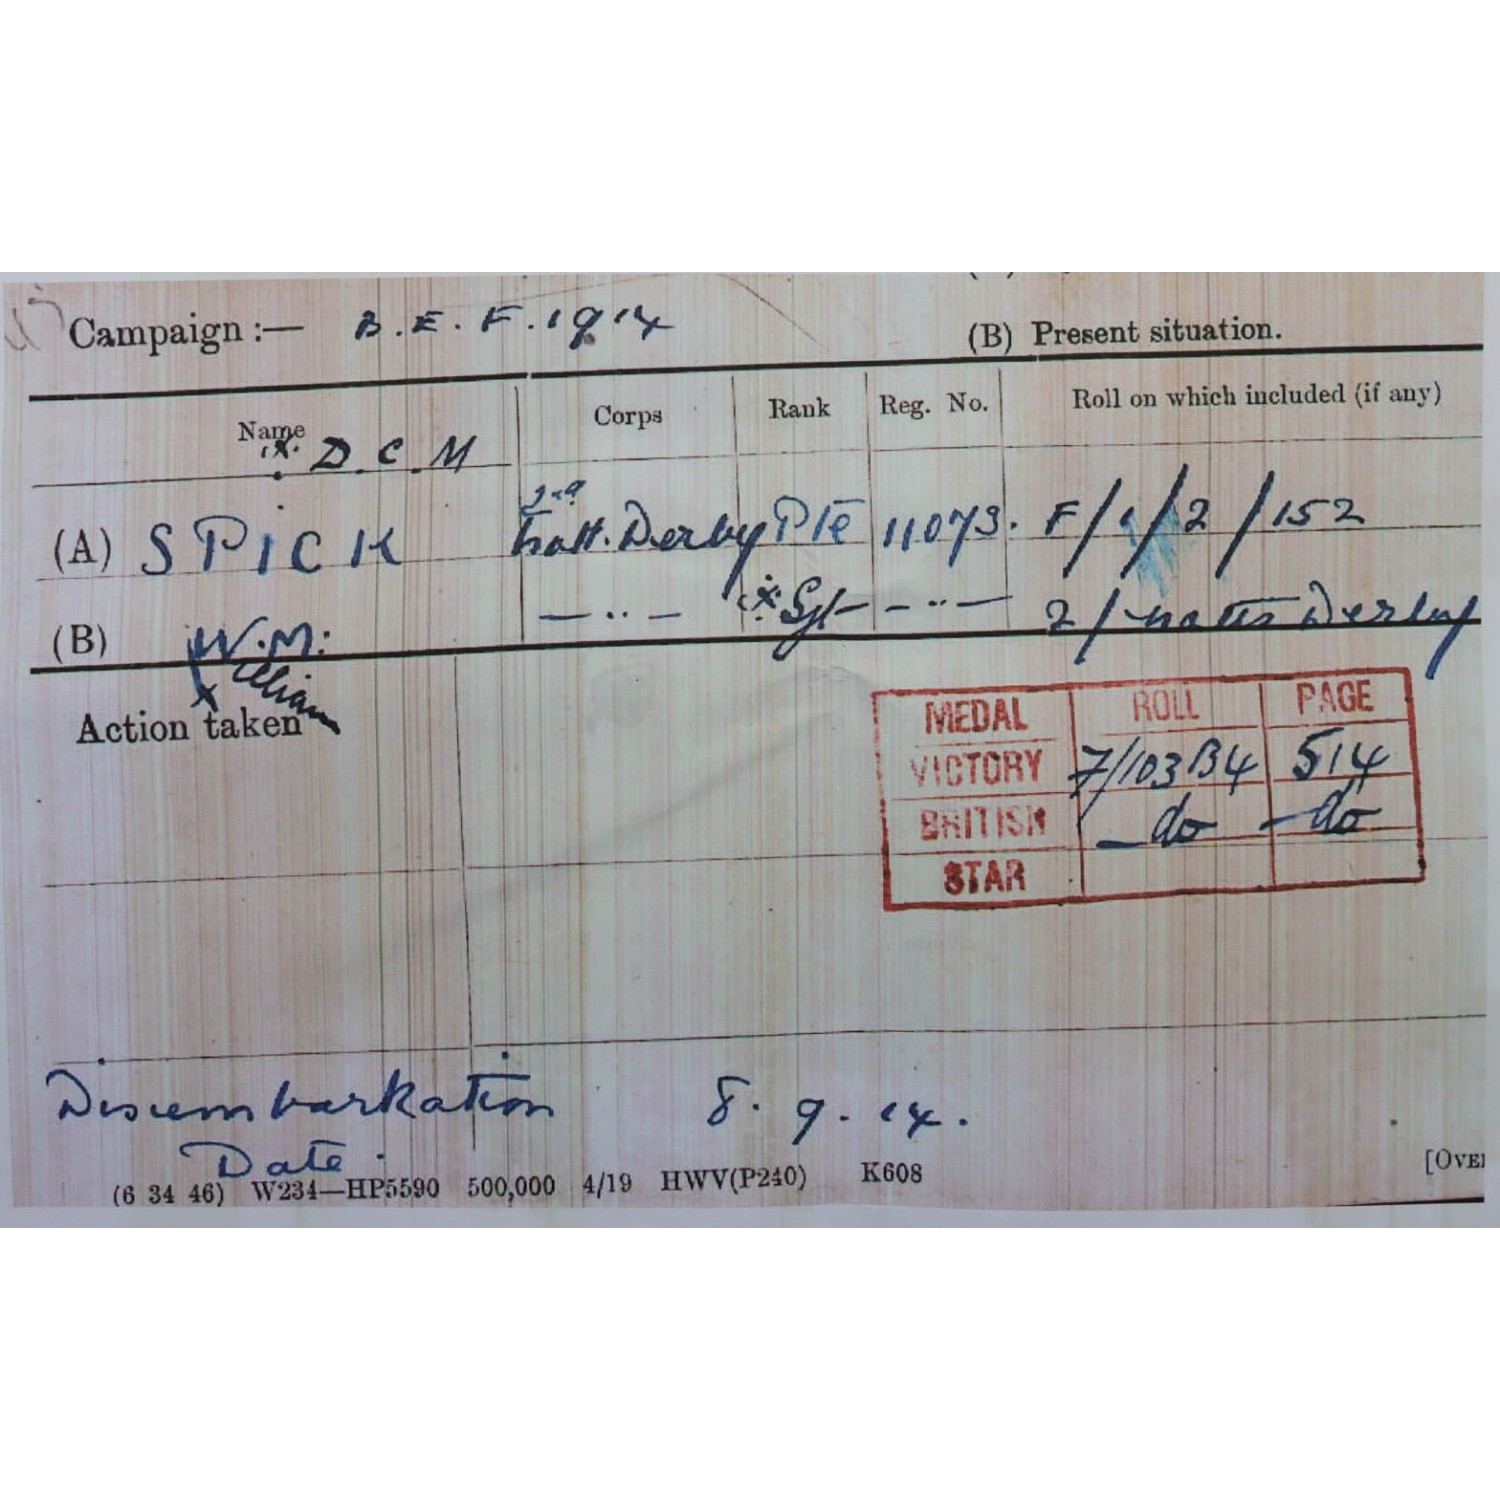 Campaign :— B.E.F. 1914
(B) Present situation.
Name Corps Rank Reg. No. Roll on which included (if any)
x D.C.M
2nd
(A) SPICK Notts. Derby Pte 11073. F/1/2/152
(B) W.M: — " — x Sgt — " — 2/Notts Derby
William
x
Action taken
MEDAL ROLL PAGE
VICTORY 7/103B4 514
BRITISH — do — do
STAR
Disembarkation 8. 9. 14.
Date.
(6 34 46) W234—HP5590 500,000 4/19 HWV(P240) K608
[OVE